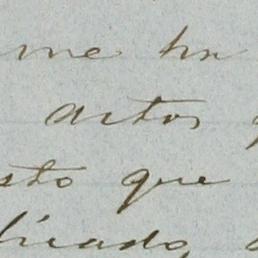 me ha
actos
sto que
licado,